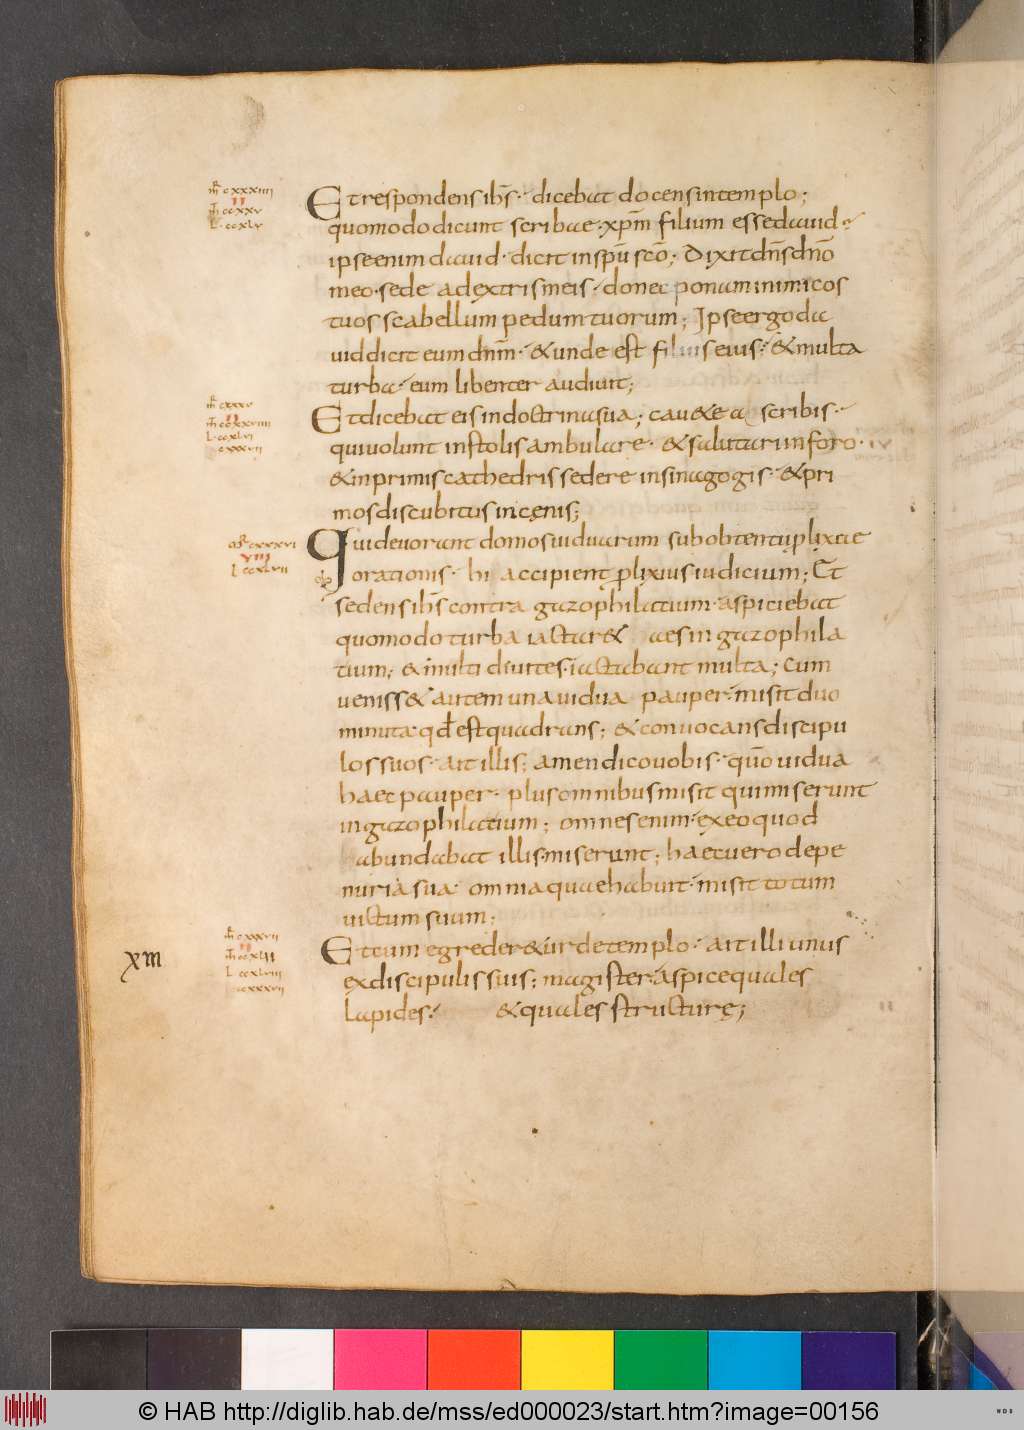 Et respondens ihs̄· dicebat docens in templo;
quomodo dicunt scribae· xpm̄ filium esse dauid·
ipse enim dauid· dicit in spū scō; Dixit dn̄s dn̄o
meo· sede a dextris meis· donec ponam inimicos
tuos scabellum pedum tuorum; Ipse ergo da
uid dicit eum dn̄m· & unde est filius eius· & multa
turba· eum libenter audiuit;
Et dicebat eis in doctrina sua; cauete a scribis·
qui uolunt in stolis ambulare· & salutari in foro·
& in primis cathedris sedere in sinagogis· & pri
mos discubitus in cęnis;
Qui deuorant domos uiduarum sub obtentu plixae
orationis· hi accipient plixius iudicium; Et
sedens ihs̄ contra gazophilatium· aspiciebat
quomodo turba iactar& aes in gazophila
tium; & multi diuites· iactabant multa; Cum
ueniss& autem una uidua pauper· misit duo
minuta· qđ est quadrans; & conuocans discipu
los suos· ait illis; amen dico uobis· qūo uidua
haec pauper· plus omnibus misit qui miserunt
in gazophilatium; omnes enim· ex eo quod
abundabat illis· miserunt; haec uero de pe
nuria sua· omnia quae habuit· misit totum
uictum suum;
XIII
Et cum egreder&ur de templo· ait illi unus
ex discipulis suis; magister· aspice quales
lapides· & quales structurę;
© HAB http://diglib.hab.de/mss/ed000023/start.htm?image=00156